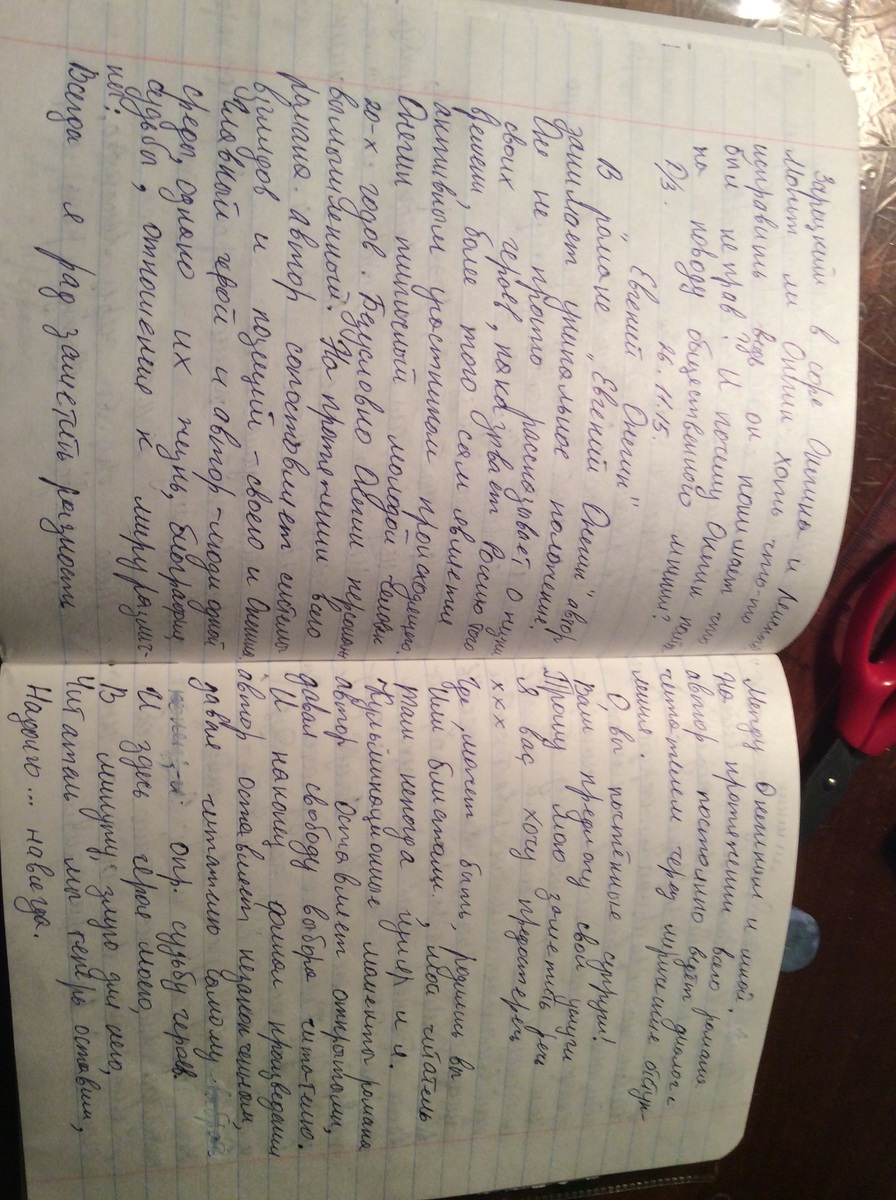 Зарецкий в соре Онегина и Ленского
Может ли Онегин хоть что-то
исправить ведь он понимает что
был не прав? И почему Онегин
на поводу общественного мнения?
Д/З. 26.11.15.
„Евгений Онегин"
В романе „Евгений Онегин" автор
занимает уникальное положение.
Он не просто рассказывает о жизни
своих героев, показывает Россию того
времени, более того сам является
активным участником происходящего.
Онегин типичный молодой человек
20-х годов. Безусловно Онегин персонаж
вымышленный. На протяжении всего
романа автор сопоставляет системы
взглядов и позиций - своего и Онегина
Главный герой и автор - люди одной
среды, однако их жизнь, биография,
судьбы, отношение к миру различ-
ны.
Всегда я рад заметить разность
Между Онегиным и мной.
На протяжении всего романа
автор постоянно ведёт диалог с
читателем через лирические отступ-
ления.
О, вы почтенные супруги!
Вам предложу свои услуги
Прошу мою заметить речь
Я вас хочу предостеречь
ххх
Где, может быть, родились вы
Или блистали, мой читатель
Там некогда гулял и я.
Кульминационные моменты романа
автор оставляет открытыми,
давая свободу выбора читателю.
И наконец финал произведения
автор оставляет незаконченным,
давая читателю самому
опр. судьбу героев.
И здесь героя моего,
В минуту, злую для него,
Читатель мы теперь оставим,
Надолго... навсегда.